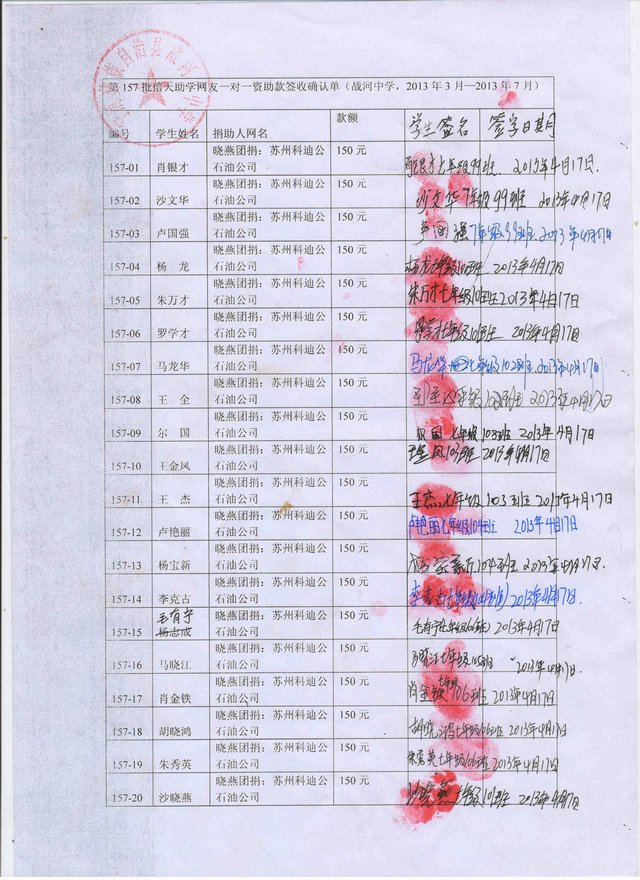 族自治县战河
第157批信天助学网友一对一资助款签收确认单（战河中学，2013年3月—2013年7月）
编号 学生姓名 捐助人网名 款额 学生签名 签字日期
157-01 肖银才 晓燕团捐：苏州科迪公 150元 七年级99班 2013年4月17日
石油公司
157-02 沙文华 晓燕团捐：苏州科迪公 150元 沙文华7年级99班 2013年4月17日
石油公司
157-03 卢国强 晓燕团捐：苏州科迪公 150元 卢国强7年级99班 2013年4月17日
石油公司
157-04 杨 龙 晓燕团捐：苏州科迪公 150元 杨龙七年级 2013年4月17日
石油公司
157-05 朱万才 晓燕团捐：苏州科迪公 150元 朱万才七年级101班 2013年4月17日
石油公司
157-06 罗学才 晓燕团捐：苏州科迪公 150元 2013年4月17日
石油公司
157-07 马龙华 晓燕团捐：苏州科迪公 150元 马龙华 七年级102班 2013年4月17日
石油公司
157-08 王 全 晓燕团捐：苏州科迪公 150元 2013年4月17日
石油公司
157-09 尔 国 晓燕团捐：苏州科迪公 150元 七年级103班 2013年4月17日
石油公司
157-10 王金凤 晓燕团捐：苏州科迪公 150元 王金凤103班 2013年4月17日
石油公司
157-11 王 杰 晓燕团捐：苏州科迪公 150元 王杰七年级103班 2013年4月17日
石油公司
157-12 卢艳丽 晓燕团捐：苏州科迪公 150元 卢艳丽七年级104班 2013年4月17日
石油公司
157-13 杨宝新 晓燕团捐：苏州科迪公 150元 104班 2013年4月17日
石油公司
157-14 李克古 晓燕团捐：苏州科迪公 150元 李克古七年级 2013年4月17日
石油公司
毛有宁
157-15 杨志成 晓燕团捐：苏州科迪公 150元 毛有宁七年级 2013年4月17日
石油公司
157-16 马晓江 晓燕团捐：苏州科迪公 150元 七年级 2013年4月17日
石油公司
157-17 肖金铁 晓燕团捐：苏州科迪公 150元 肖金铁七年级106班 2013年4月17日
石油公司
157-18 胡晓鸿 晓燕团捐：苏州科迪公 150元 胡晓鸿七年级 2013年4月17日
石油公司
157-19 朱秀英 晓燕团捐：苏州科迪公 150元 朱秀英七年级 2013年4月17日
石油公司
157-20 沙晓燕 晓燕团捐：苏州科迪公 150元 沙晓燕七年级101班 2013年4月17日
石油公司